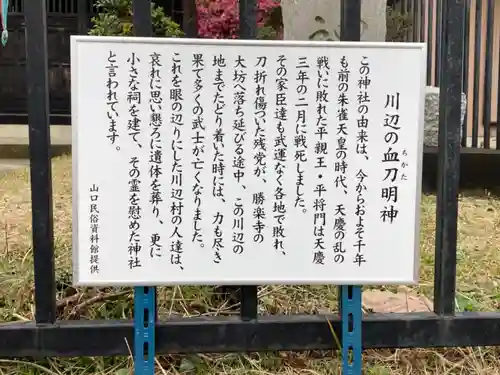 川辺の血刀明神
ちかた
この神社の由来は、今からおよそ千年
も前の朱雀天皇の時代、天慶の乱の
戦いに敗れた平親王・平将門は天慶
三年の二月に戦死しました。
その家臣達も武運なく各地で敗れ、
刀折れ傷ついた残党が、勝楽寺の
大坊へ落ち延びる途中、この川辺の
地までたどり着いた時には、力も尽き
果て多くの武士が亡くなりました。
これを眼の辺りにした川辺村の人達は、
哀れに思い懇ろに遺体を葬り、更に
小さな祠を建て、その霊を慰めた神社
と言われています。
山口民俗資料館提供